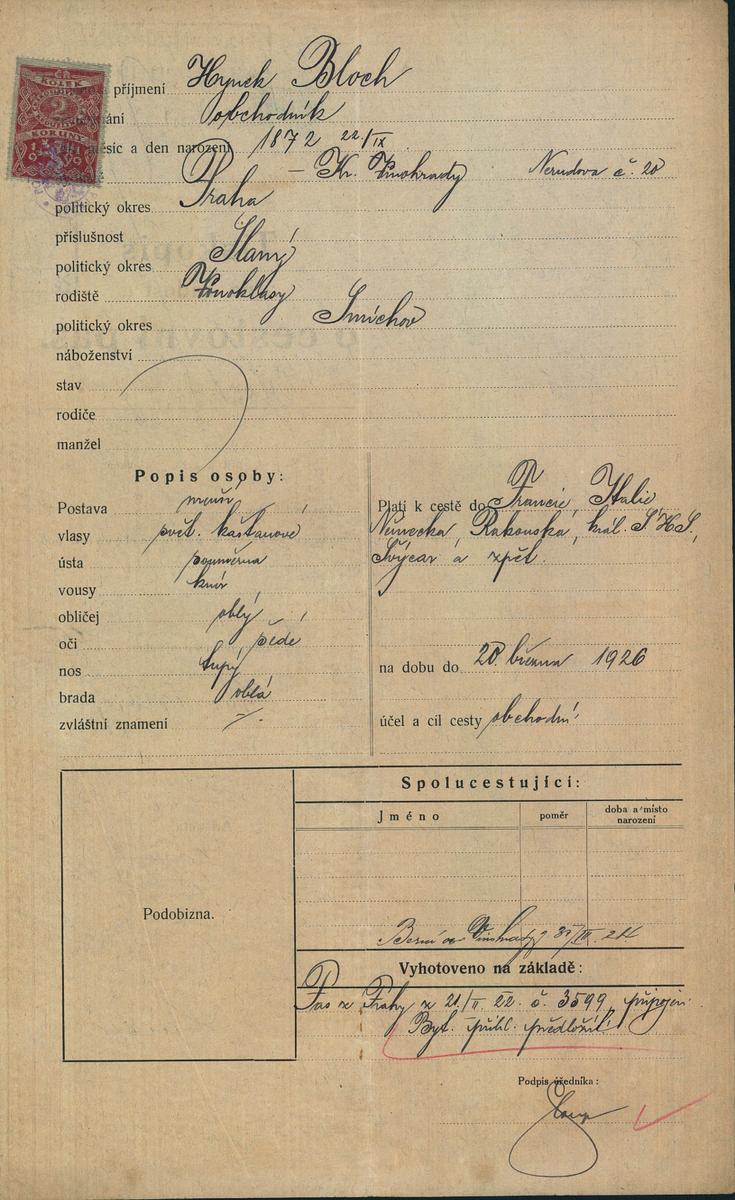 KOLEK
2
KORUNY
1919
příjmení Hynek Bloch
obchodník
měsíc a den narození 1872 22/IX
Praha - Kr. Vinohrady Nerudova č. 20
politický okres
příslušnost
politický okres Slaný
rodiště Vonoklasy
politický okres Smíchov
náboženství
stav
rodiče
manžel
Popis osoby:
Postava menší
vlasy svět. kaštanové
ústa souměrna
vousy knír
obličej oblý
oči šedé
nos tupý
brada oblá
zvláštní znamení
Platí k cestě do Francie, Italie
Německa, Rakouska, král. S H S,
Švýcar a zpět.
na dobu do 20. března 1926
účel a cíl cesty obchodní
Spolucestující:
Jméno poměr doba a místo narození
Podobizna.
Berní Vinohrady 31/III. 24
Vyhotoveno na základě:
Pas z Prahy z 21/II. 22. č. 3599, připojen.
Byt. přihl. předložil.
Podpis úředníka: